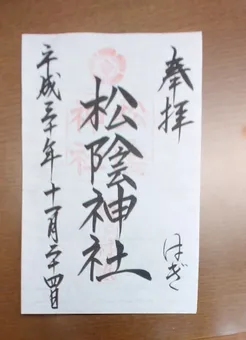 奉拝
はぎ
松陰神社
平成三十年十一月二十四日